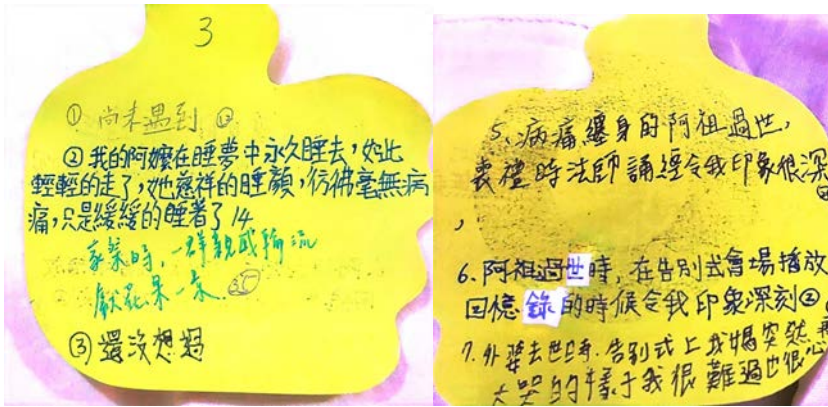 3
① 尚未遇到 ⑫
② 我的阿嬤在睡夢中永久睡去,如此
輕輕的走了,她慈祥的睡顏,彷彿毫無病
痛,只是緩緩的睡著了 14
家祭時,一群親戚輪流
獻花果一桌
③ 還沒想過
5、病痛纏身的阿祖過世,
喪禮時法師誦經令我印象很深
,
6.阿祖過世時,在告別式會場播放
回憶錄的時候令我印象深刻②
7.外婆去世時.告別式上我媽突然
大哭的樣子我很難過也很心